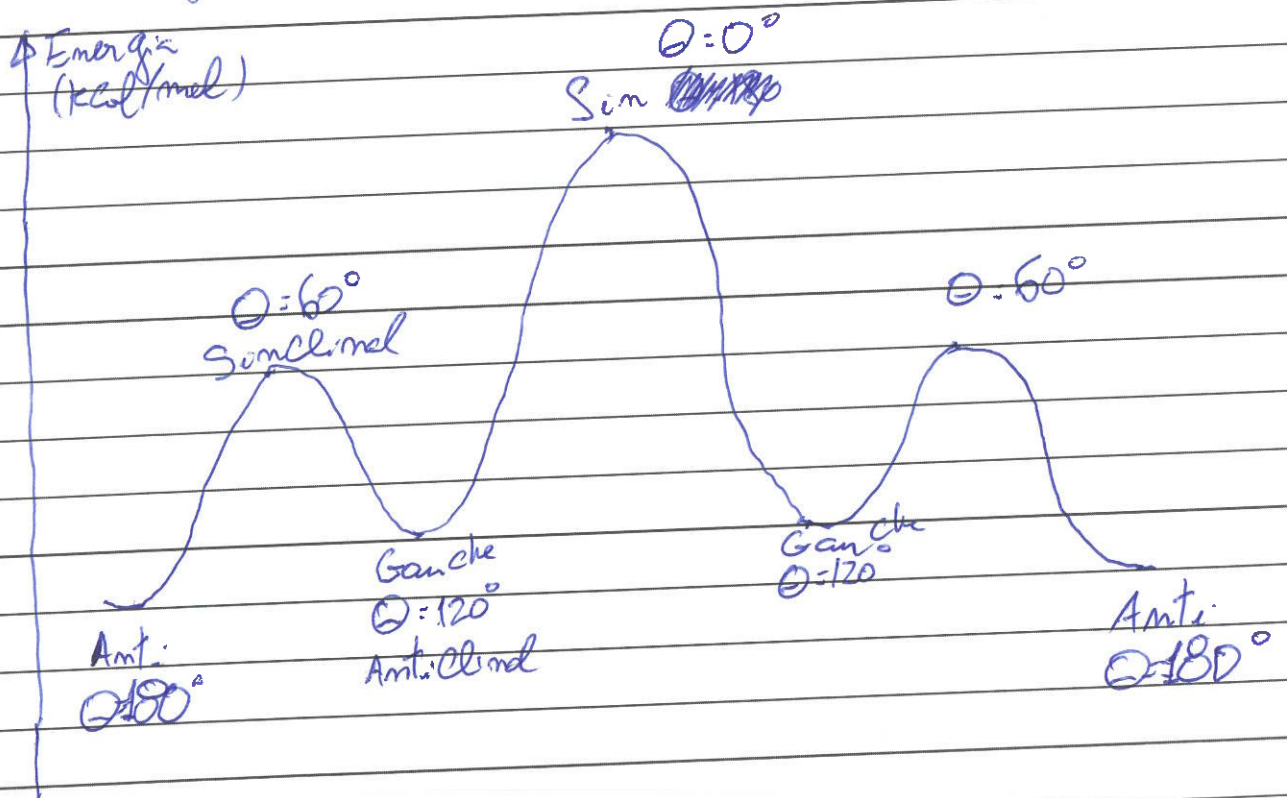 Energia
(kcal/mol)
Θ=0°
Sin
Θ=60°
Sinclinal
Θ=60°
Gauche
Θ=120°
Anticlinal
Gauche
Θ=120
Anti
Θ=180°
Anti
Θ=180°